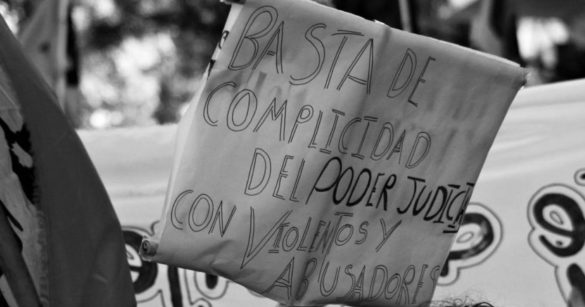 BASTA DE
COMPLICIDAD
DEL PODER JUDICIAL
CON VIOLENTOS Y
ABUSADORES